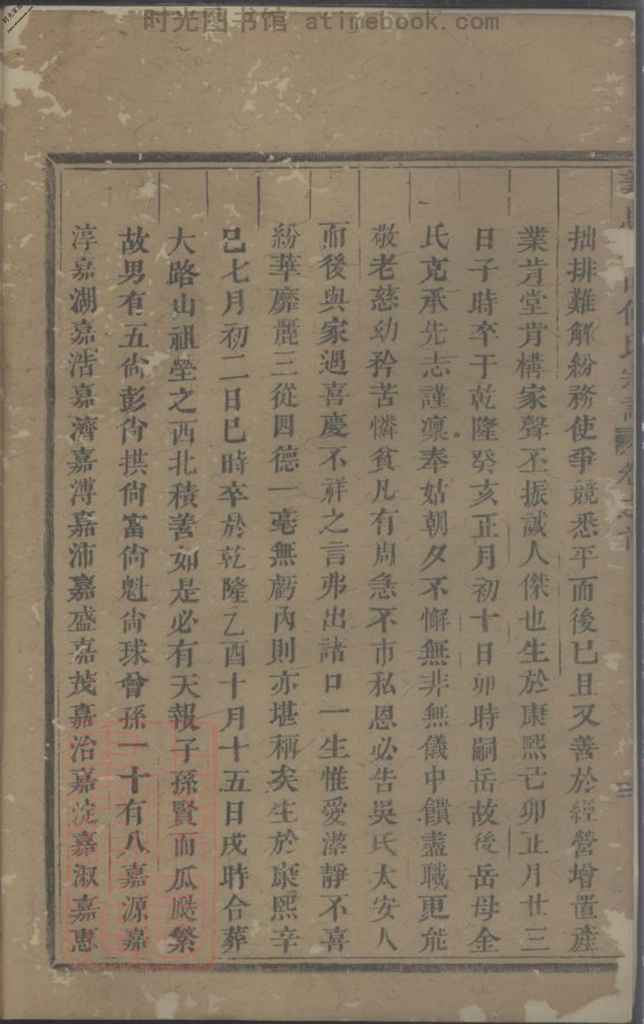 时光图书馆 atimebook.com
何氏宗譜 卷之首
拙排難解紛務使爭競悉平而後已且又善於經營增置產
業肯堂肯構家聲丕振誠人傑也生於康熙己卯正月廿三
日子時卒于乾隆癸亥正月初十日卯時嗣岳故後岳母金
氏克承先志謹凜奉姑朝夕不懈無非無儀中饋盡職更能
敬老慈幼矜苦憐貧凡有周急不市私恩必告吳氏太安人
而後與家遇喜慶不祥之言弗出諸口一生惟愛潔靜不喜
紛華靡麗三從四德一毫無虧內則亦堪稱矣生於康熙辛
巳七月初二日巳時卒於乾隆乙酉十月十五日戌時合葬
大路山祖塋之西北積善如是必有天報子孫賢而瓜瓞繁
故男有五尙彭尙拱尙富尙魁尙球曾孫一十有八嘉源嘉
淳嘉湖嘉浩嘉濟嘉溥嘉沛嘉盛嘉茂嘉治嘉淀嘉淑嘉惠